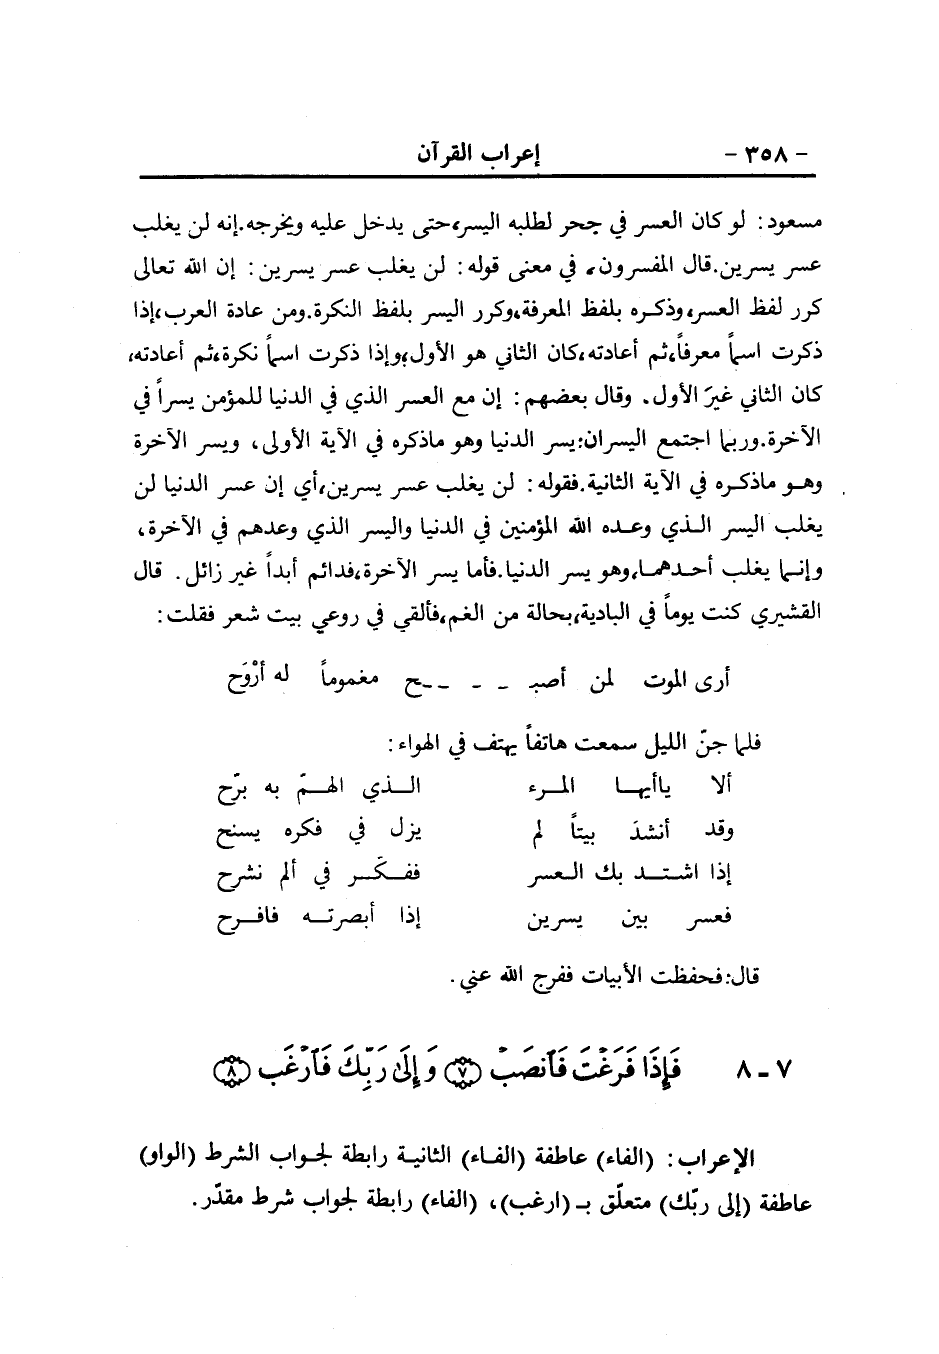 - ٣٥٨ - إعراب القرآن
مسعود: لو كان العسر في جحر لطلبه اليسر،حتى يدخل عليه ويخرجه.إنه لن يغلب
عسر يسرين.قال المفسرون، في معنى قوله: لن يغلب عسر يسرين: إن الله تعالى
كرر لفظ العسر،وذكره بلفظ المعرفة،وكرر اليسر بلفظ النكرة.ومن عادة العرب،إذا
ذكرت اسماً معرفاً،ثم أعادته،كان الثاني هو الأول،وإذا ذكرت اسماً نكرة،ثم أعادته،
كان الثاني غيرَ الأول. وقال بعضهم: إن مع العسر الذي في الدنيا للمؤمن يسراً في
الآخرة.وربما اجتمع اليسران:يسر الدنيا وهو ماذكره في الآية الأولى، ويسر الآخرة
وهو ماذكره في الآية الثانية.فقوله: لن يغلب عسر يسرين،أي إن عسر الدنيا لن
يغلب اليسر الذي وعده الله المؤمنين في الدنيا واليسر الذي وعدهم في الآخرة،
وإنما يغلب أحدهما،وهو يسر الدنيا.فأما يسر الآخرة،فدائم أبداً غير زائل. قال
القشيري كنت يوماً في البادية،بحالة من الغم،فألقي في روعي بيت شعر فقلت:
أرى الموت لمن أصبـ - - -ـح مغموماً له أرْوَح
فلما جنّ الليل سمعت هاتفاً يهتف في الهواء:
ألا ياأيها المرء الذي الهمّ به برّح
وقد أنشدَ بيتاً لم يزل في فكره يسنح
إذا اشتد بك العسر ففكّر في ألم نشرح
فعسر بين يسرين إذا أبصرته فافرح
قال:فحفظت الأبيات ففرج الله عني.
٧ - ٨ فَإِذَا فَرَغْتَ فَٱنصَبْ ﴿٧﴾ وَإِلَىٰ رَبِّكَ فَٱرْغَب ﴿٨﴾
الإعراب: (الفاء) عاطفة (الفاء) الثانية رابطة لجواب الشرط (الواو)
عاطفة (إلى ربّك) متعلّق بـ (ارغب)، (الفاء) رابطة لجواب شرط مقدّر.